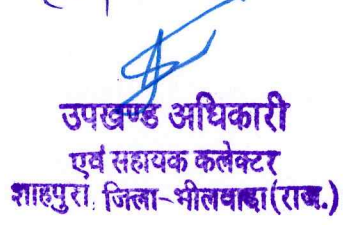 उपखण्ड अधिकारी
एवं सहायक कलेक्टर
शाहपुरा जिला-भीलवाडा (राज.)